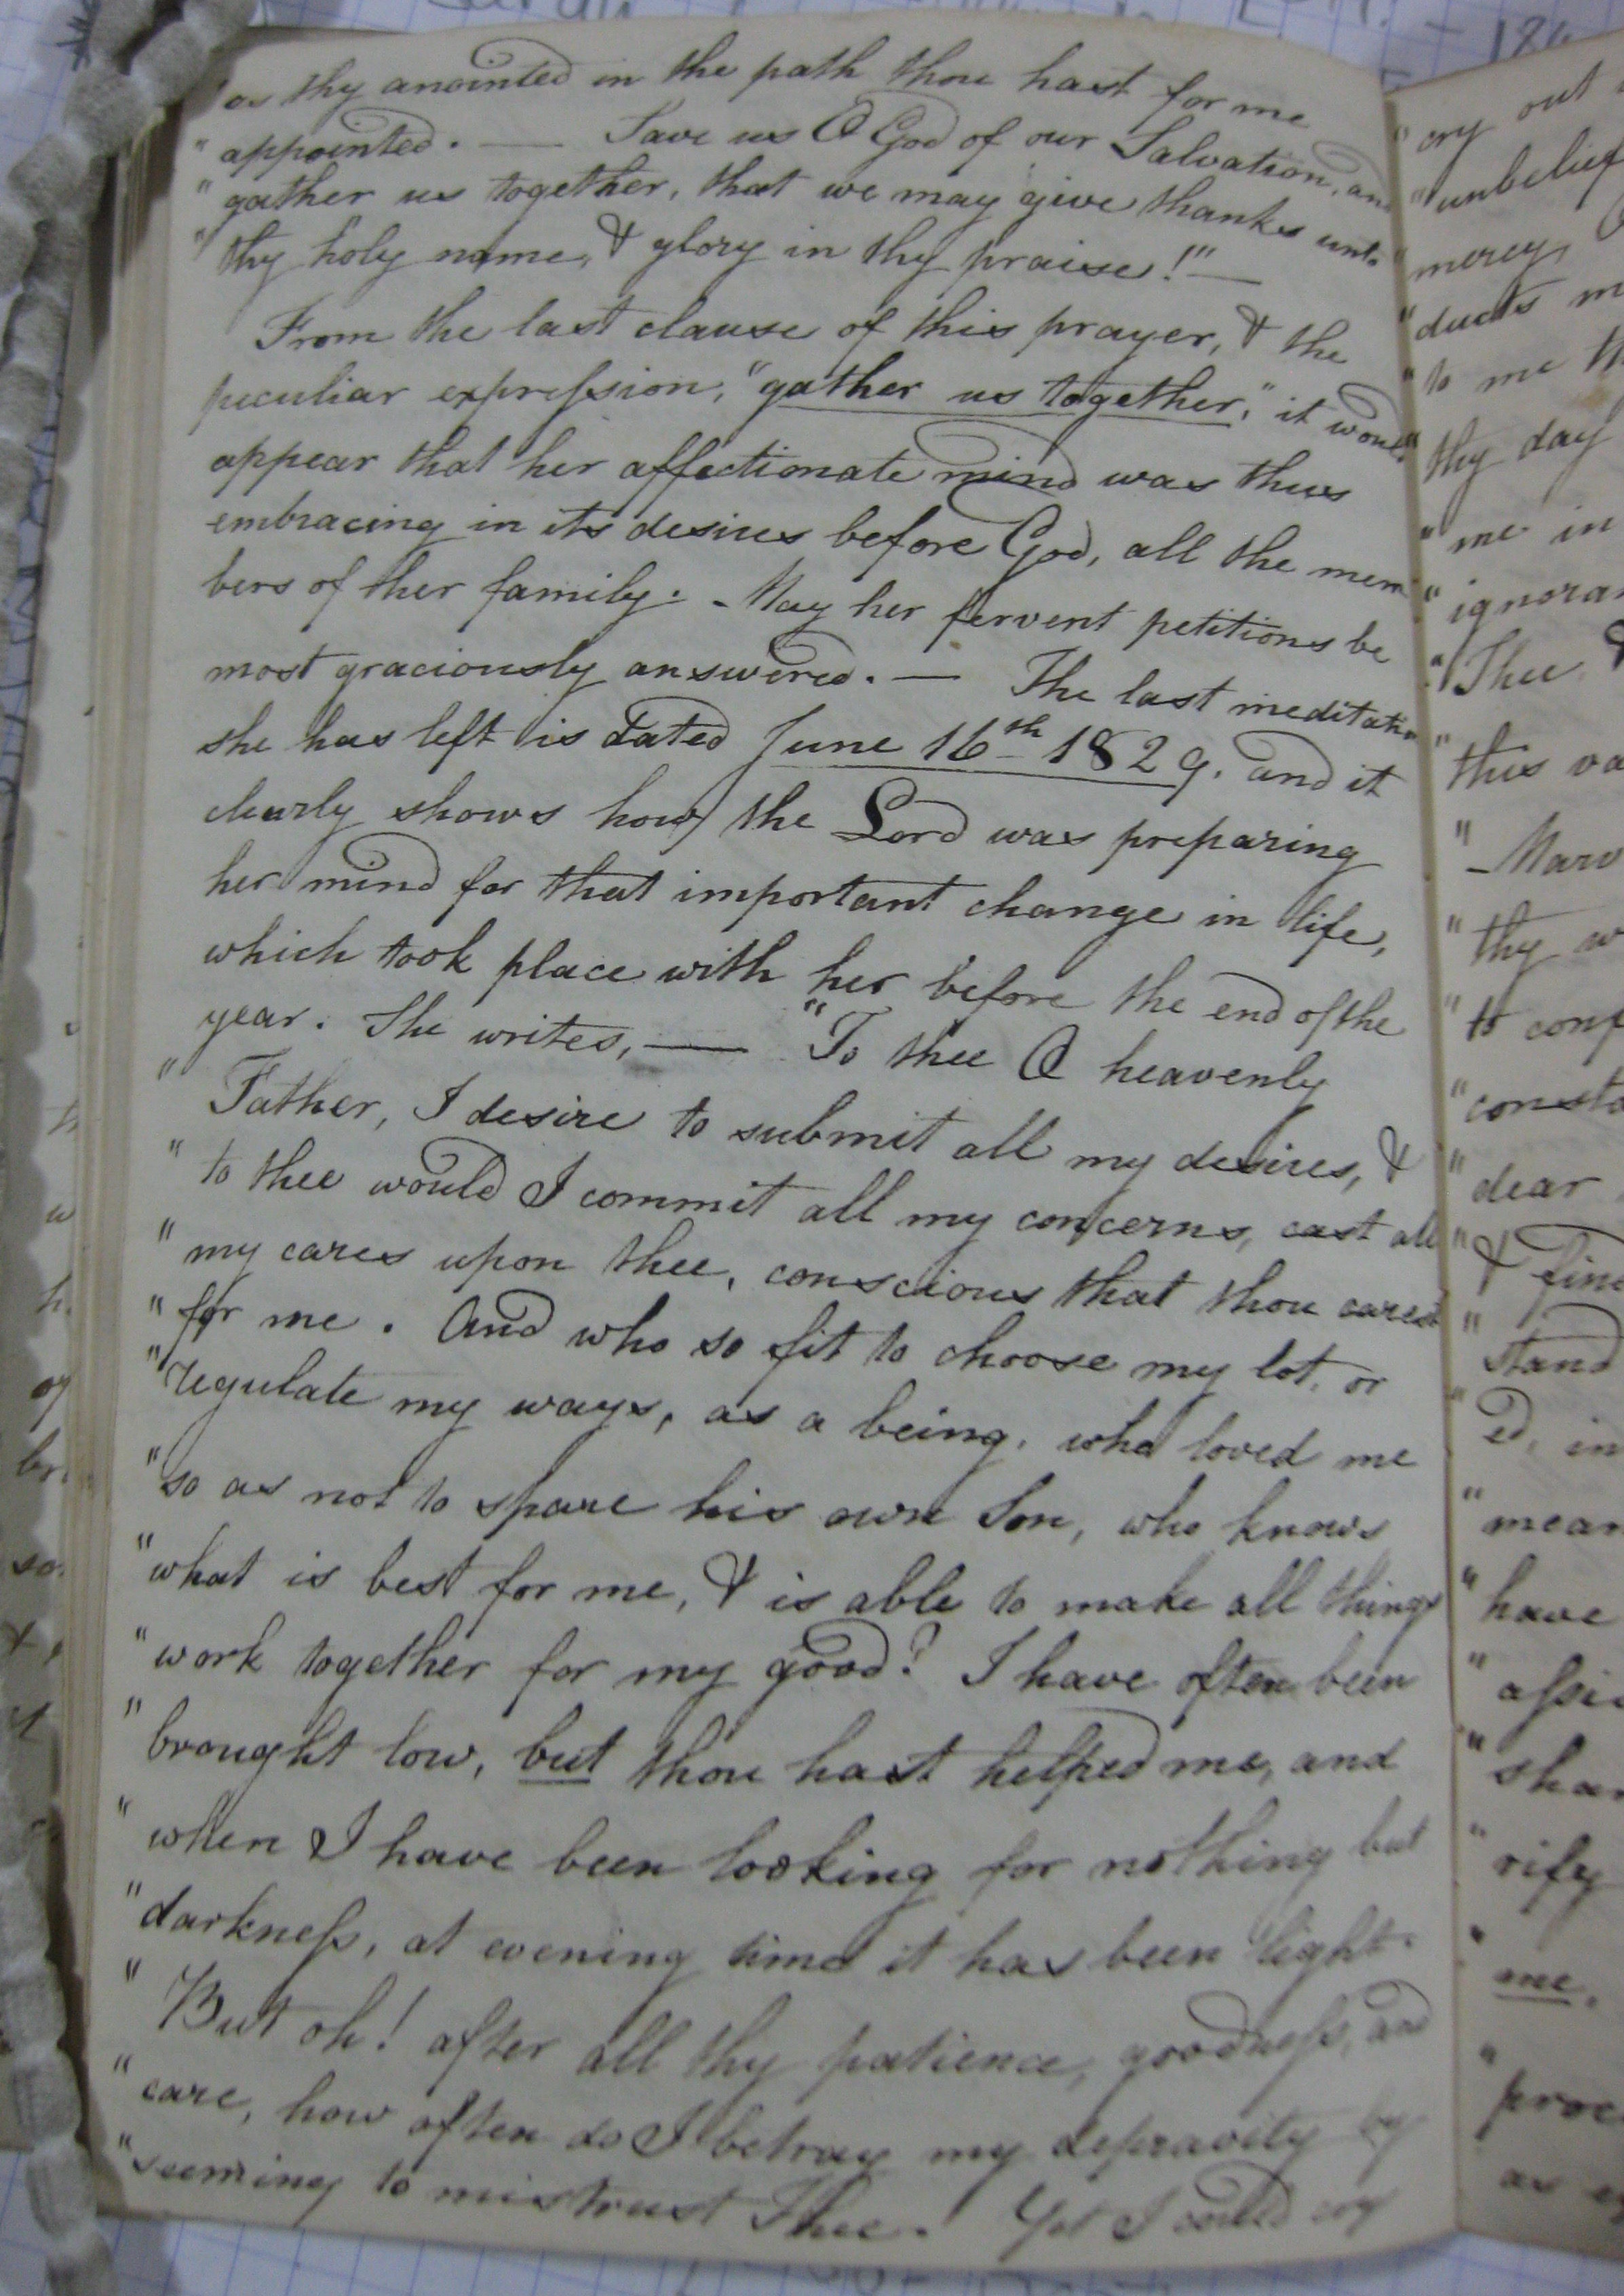 "as thy anointed in the path thou hast for me
"appointed. — Save us O God of our Salvation, and
"gather us together, that we may give thanks unto
"thy holy name, & glory in thy praise!" —
From the last clause of this prayer, & the
peculiar expreſsion, "gather us together," it would
appear that her affectionate mind was thus
embracing in its desires before God, all the mem
bers of ther family. - May her fervent petitions be
most graciously answered. — The last meditation
she has left is dated June 16th 1829. and it
clearly shows how the Lord was preparing
her mind for that important change in life,
which took place with her before the end of the
year. She writes, — "To thee O heavenly
" Father, I desire to submit all my desires, &
" to thee would I commit all my concerns, cast all
" my cares upon thee, conscious that thou carest
" for me. And who so fit to choose my lot, or
"regulate my ways, as a being, who loved me
"so as not to spare his own Son, who knows
"what is best for me, & is able to make all things
"work together for my good? I have often been
"brought low, but thou hast helped me, and
"when I have been looking for nothing but
"darkneſs, at evening time it has been light.
" But oh! after all thy patience, goodneſs, and
"care, how often do I betray my depravity by
"seeming to mistrust Thee. Yet I could cry
"cry out
"unbelief
"mercy,
"ducts
"to me
"thy day
"me in
"Thee &
"this
"thy
"to
"dear
"&
"stand
"ed, in
"have
"rify
"me,
as